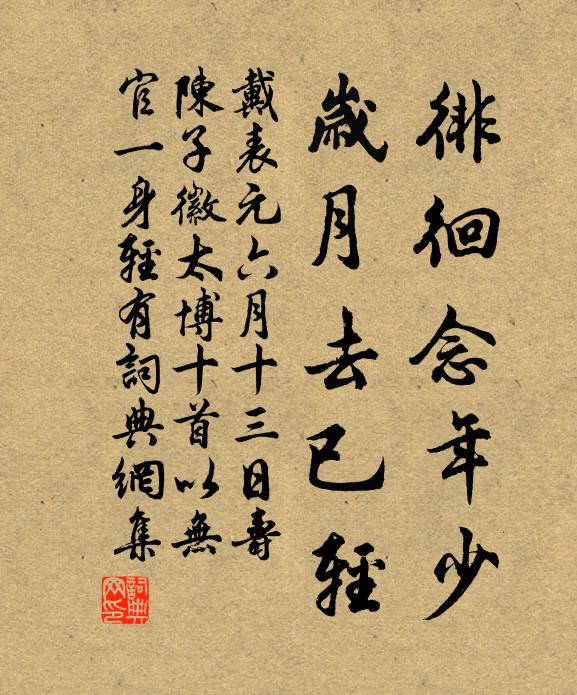 徘徊念年少
歲月去已輕
戴表元六月十三日壽
陳子徽太博十首以無
官一身輕有詞典網集
詞典网印